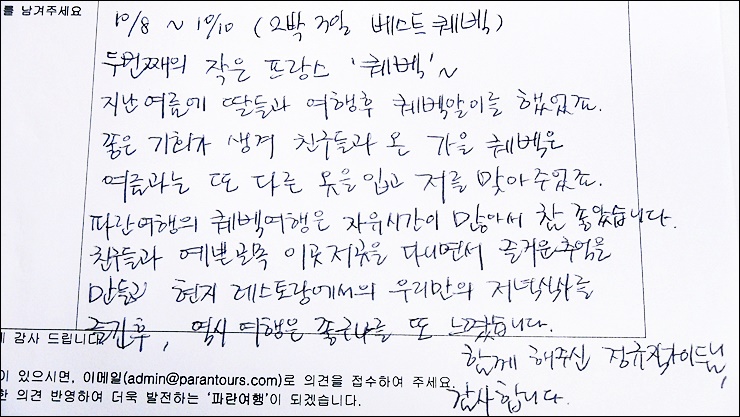 를 남겨주세요
10/8 ~ 10/10 (2박 3일 베스트 퀘벡)
두번째의 작은 프랑스 '퀘벡'~
지난여름에 딸들과 여행후 퀘벡앓이를 했었죠.
좋은 기회가 생겨 친구들과 온 가을 퀘벡은
여름과는 또 다른 옷을입고 저를 맞아주었죠.
파란여행의 퀘벡여행은 자유시간이 많아서 참 좋았습니다.
친구들과 예쁜골목 이곳저곳을 다니면서 즐거운추억을
만들고 현지 레스토랑에서의 우리만의 저녁식사를
즐긴후, 역시 여행은 좋구나를 또 느꼈습니다.
감사 드립니다
함께 해주신 정규직가이드님
이 있으시면, 이메일(admin@parantours.com)로 의견을 접수하여 주세요.
감사합니다.
한 의견 반영하여 더욱 발전하는 '파란여행'이 되겠습니다.